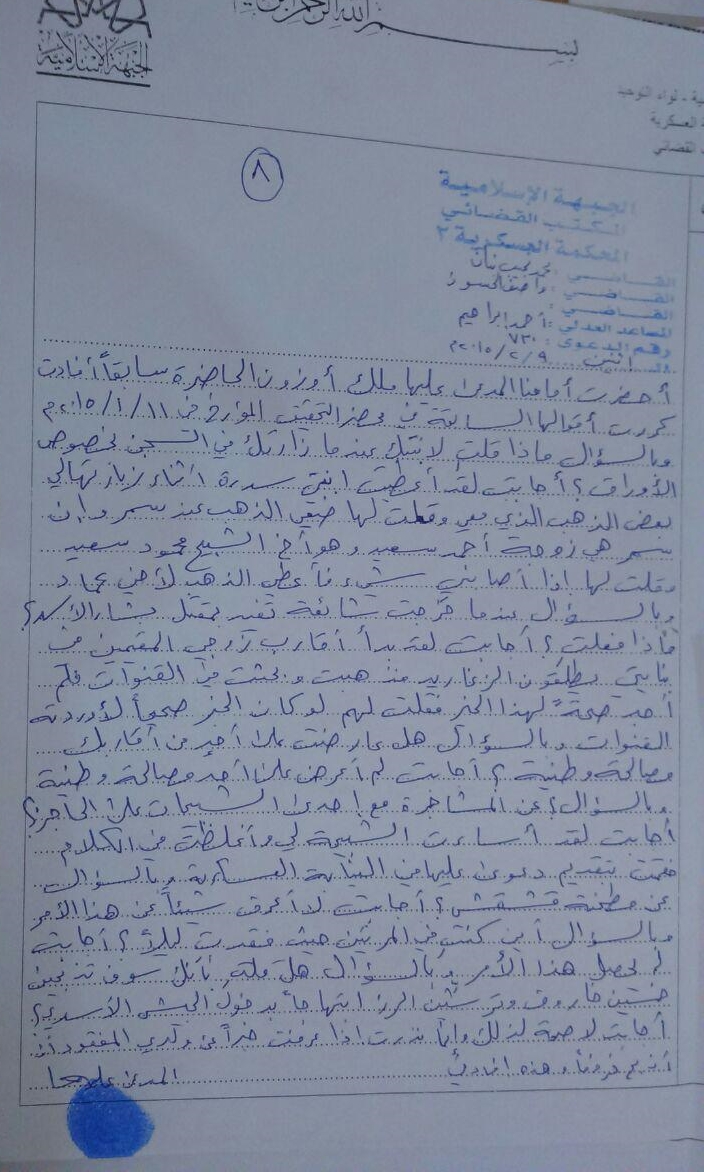 بسم الله الرحمن الرحيم
الجبهة الإسلامية
لواء التوحيد
العسكرية
القضائي
٨
الجبهة الإسلامية
المكتب القضائي
المحكمة العسكرية ٢
القاضي :
القاضي :
القاضي :
المساعد العدلي : أحمد ابراهيم
رقم الدعوى : ٧٣٠
اثنين ٢٠١٥/٢/٩م
أحضرت أمامنا المدعى عليها ملك أوزون الحاضرة سابقاً أفادت
كررت أقوالها السابقة في محضر التحقيق المؤرخ في ٢٠١٥/١/١١م
وبالسؤال ماذا قلت لابنتك عندما زارتك في السجن بخصوص
الأوراق؟ أجابت لقد أعطيت ابنتي سدرة أثناء زيارتها لي
بعض الذهب الذي معي وقلت لها ضعي الذهب عند سمر وإن
سمر هي زوجة أحمد سعيد وهو أخ الشيخ محمود سعيد
وقلت لها إذا أصابني شيء فأعطي الذهب لأخي عماد
وبالسؤال عندما خرجت شائعة تفيد بمقتل بشار الأسد؟
ماذا فعلت؟ أجابت لقد بدأ أقارب زوجي المقيمين في
بنايتي يطلقون الزغاريد فذهبت وبحثت في القنوات فلم
أجد صحة لهذا الخبر فقلت لهم لو كان الخبر صحيحاً لأوردته
القنوات وبالسؤال هل عارضت على أحد من أقاربك
مصالحة وطنية؟ أجابت لم أعرض على أحد مصالحة وطنية
وبالسؤال؟ عن المشاجرة مع إحدى الشيخات على الحاجز؟
أجابت لقد أساءت الشيخة لي وأغلظت في الكلام
فقمت بتقديم دعوى عليها في النيابة العسكرية وبالسؤال
عن مطحنة قشقش؟ أجابت لا أعرف شيئاً عن هذا الأمر
وبالسؤال أين كنت في المرتين حيث فقدت ليلاً؟ أجابت
لم يحصل هذا الأمر وبالسؤال هل قلت بأنك سوف تذبحين
خمسين خاروف وترشين الرز ابتهاجاً بدخول الجيش الأسدي؟
أجابت لا صحة لذلك وإنما نذرت إذا عرفت خبراً عن ولدي المفقود أن
أذبح خروفاً وهذه افادتي
المدعى عليها